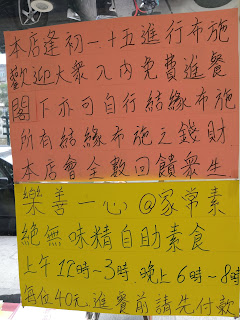 本店逢初一十五進行布施
歡迎大眾入內免費進餐
閣下亦可自行結緣布施
所有結緣布施之錢財
本店會全數回饋眾生
樂善一心@家常素
絕無味精自助素食
上午12時~3時.晚上6時~8時
每位40元進餐前請先付款